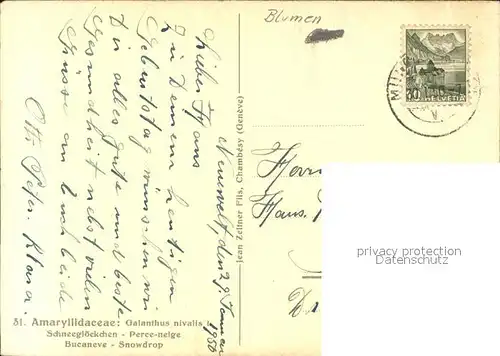 Blumen
HELVETIA
30
MÜN
Neuewelt, den 29. Januar
1950
Lieber Hans
Zu Deinem heutigen
Geburtstag wünschen wir
Dir alles gute und beste
Gesundheit nebst vielen
Grüsse an Euch beide
Otti Peter Klara.
Herrn
Hans.
Jean Zellner Fils, Chambésy (Genève)
privacy protection
watermark
31. Amaryllidaceae: Galanthus nivalis L.
Schneeglöckchen - Perce-neige
Bucaneve - Snowdrop